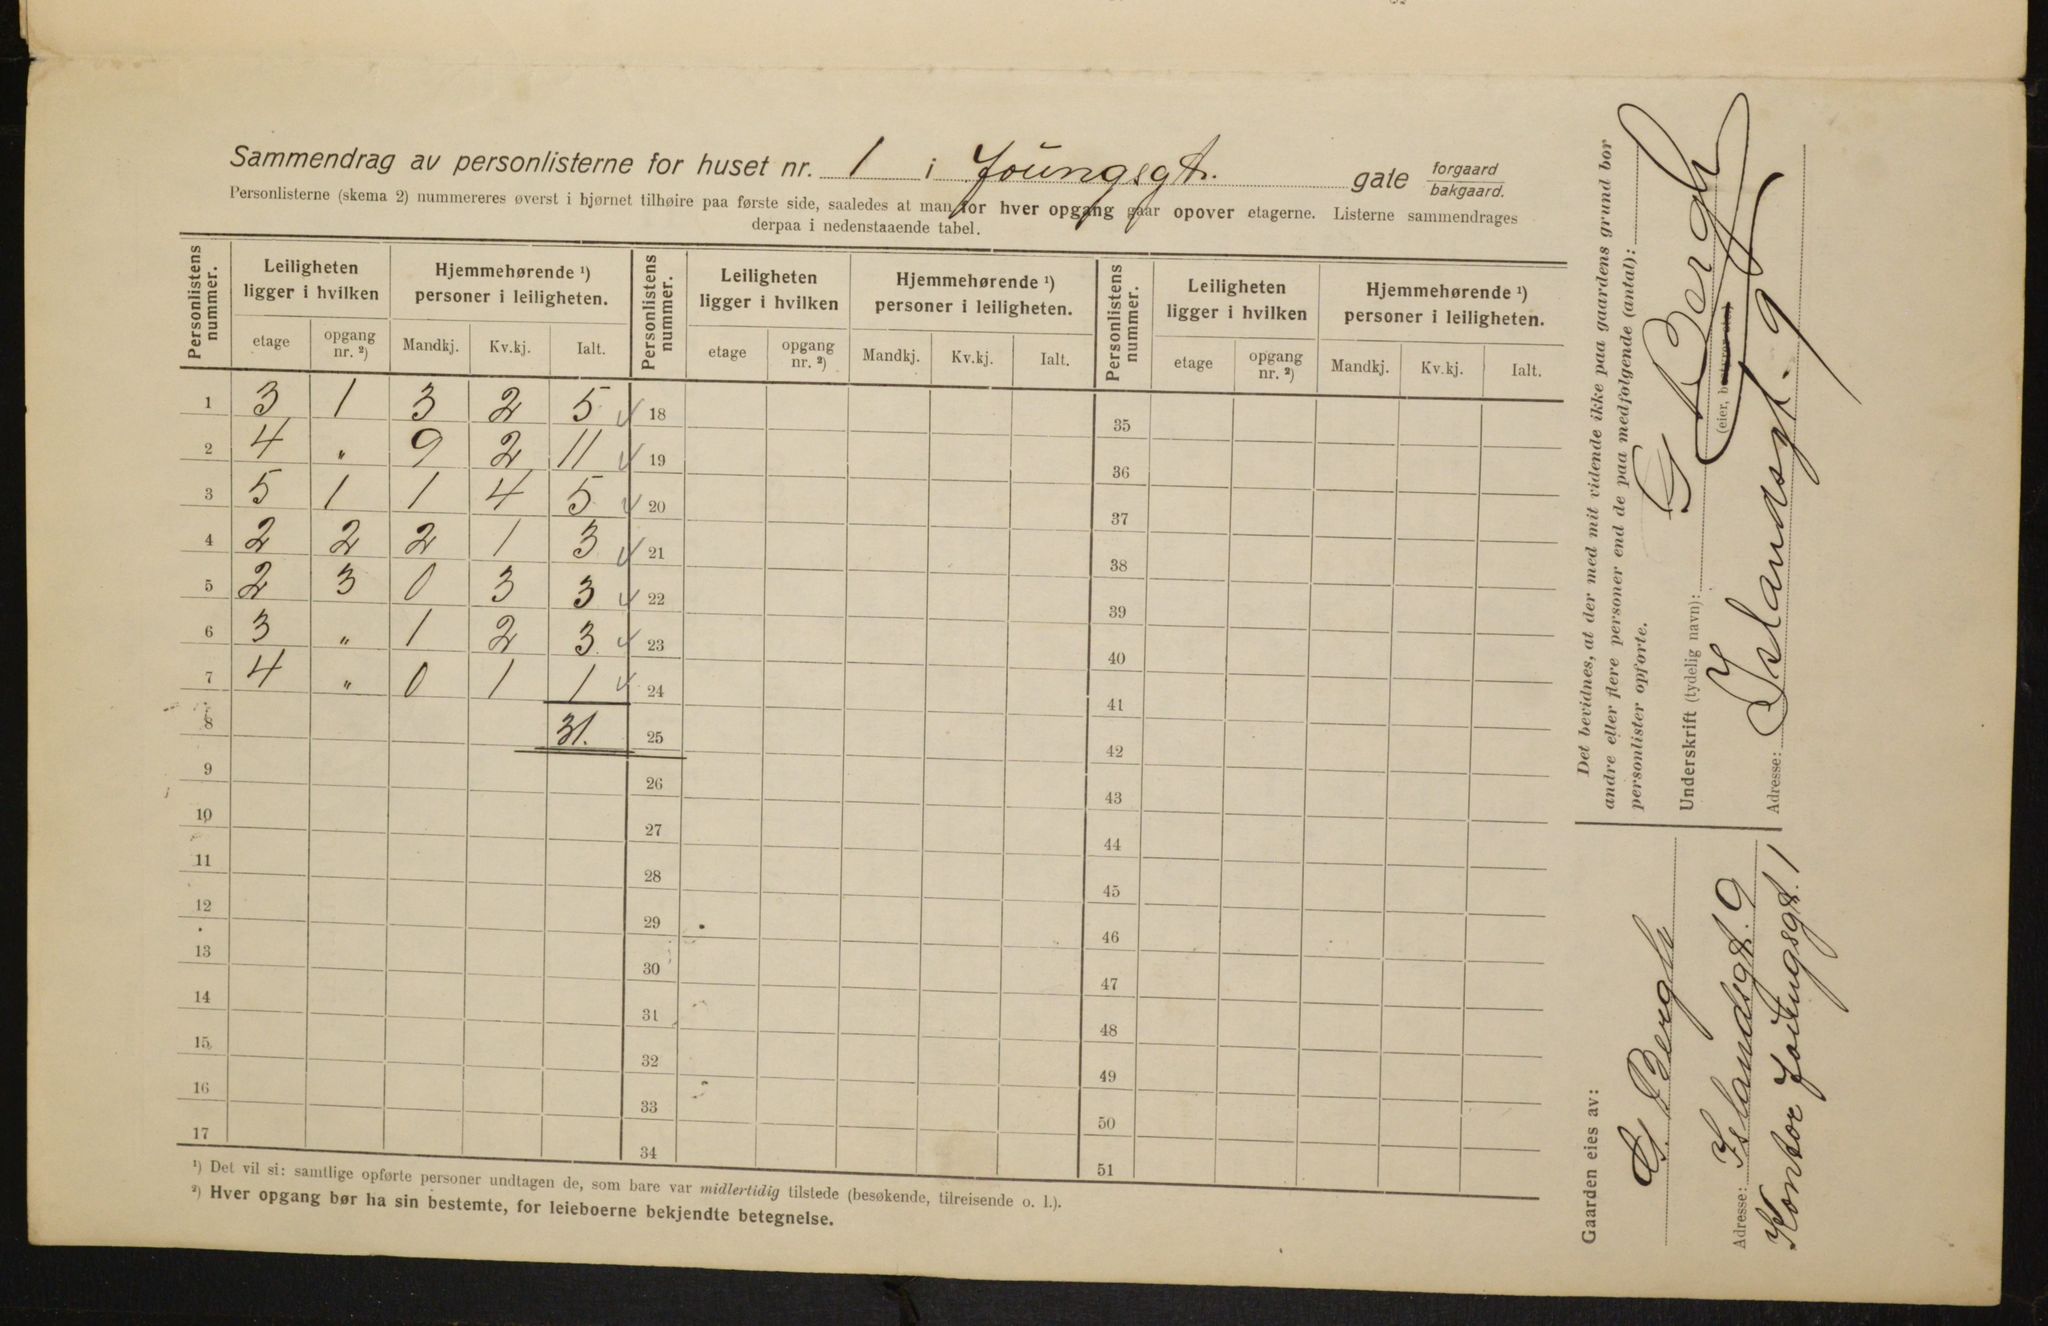 Sammendrag av personlisterne for huset nr. 1 i Youngsgt. gate forgaard bakgaard.
Personlisterne (skema 2) nummereres øverst i hjørnet tilhøire paa første side, saaledes at man for hver opgang gaar opover etagerne. Listerne sammendrages
derpaa i nedenstaaende tabel.
Personlistens nummer. Leiligheten ligger i hvilken Hjemmehørende ¹) personer i leiligheten. Personlistens nummer. Leiligheten ligger i hvilken Hjemmehørende ¹) personer i leiligheten. Personlistens nummer. Leiligheten ligger i hvilken Hjemmehørende ¹) personer i leiligheten.
etage opgang nr. ²) Mandkj. Kv.kj. Ialt. etage opgang nr. ²) Mandkj. Kv.kj. Ialt. etage opgang nr. ²) Mandkj. Kv.kj. Ialt.
1 3 1 3 2 5 18 35
2 4 „ 9 2 11 19 36
3 5 1 1 4 5 20 37
4 2 2 2 1 3 21 38
5 2 3 0 3 3 22 39
6 3 „ 1 2 3. 23 40
7 4 „ 0 1 1 24 41
8 31. 25 42
9 26 43
10 27 44
11 28 45
12 29 46
13 30 47
14 31 48
15 32 49
16 33 50
17 34 51
¹) Det vil si: samtlige opførte personer undtagen de, som bare var midlertidig tilstede (besøkende, tilreisende o. l.).
²) Hver opgang bør ha sin bestemte, for leieboerne bekjendte betegnelse.
Det bevidnes, at der med mit vidende ikke paa gaardens grund bor
andre eller flere personer end de paa medfølgende (antal):
personlister opførte.
Underskrift (tydelig navn): G Bergh
(eier, bestyrer etc.)
Adresse: Islandsgt. 9
Gaarden eies av:
G. Bergh
Adresse: Islandsgt. 9
Kontor Youngsgt. 1